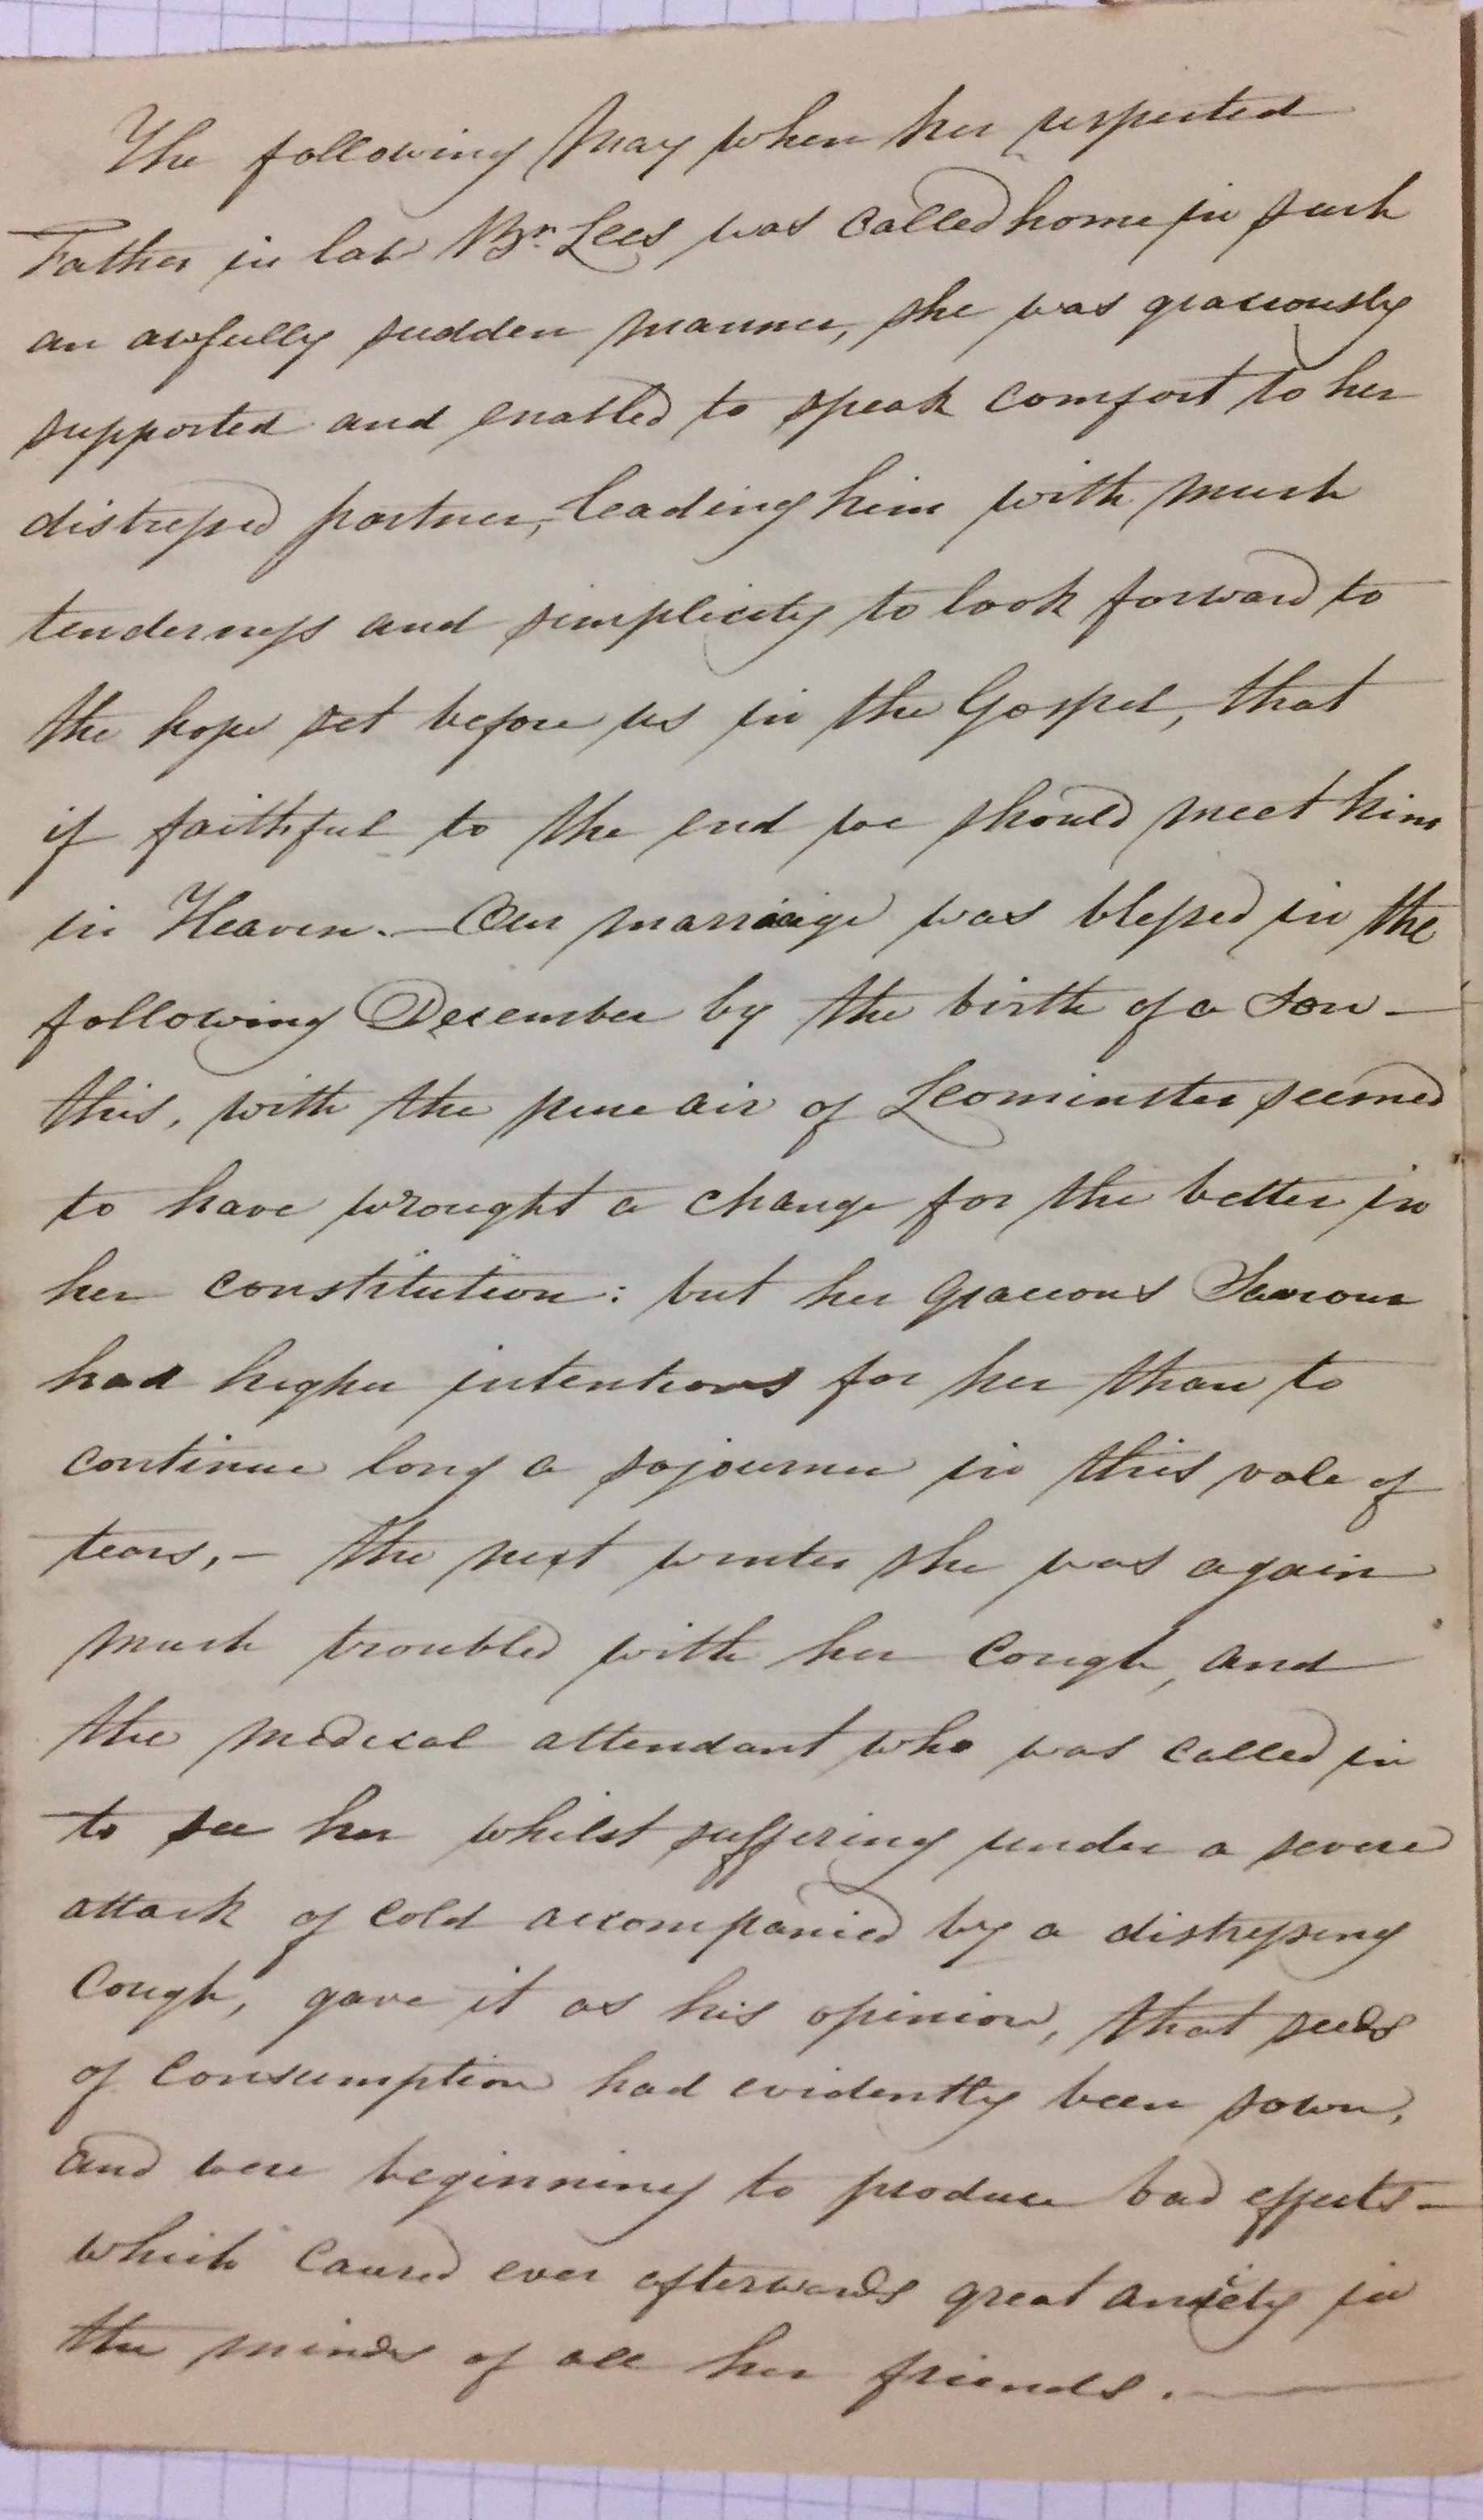 The following May when her respected
Father in law Br. Lees was called home in such
an awfully sudden manner, she was graciously
supported and enabled to speak comfort to her
distressed partner, leading him with much
tenderness and simplicity to look forward to
the hope set before us in the Gospel, that
if faithful to the end we should meet him
in Heaven. — Our marriage was blessed in the
following December by the birth of a Son —
this, with the pure air of Leominster seemed
to have wrought a change for the better in
her constitution: but her gracious Saviour
had higher intentions for her than to
continue long a sojourner in this vale of
tears, — the next winter she was again
much troubled with her cough, and
the medical attendant who was called in
to see her whilst suffering under a severe
attack of cold accompanied by a distressing
Cough, gave it as his opinion, that seeds
of Consumption had evidently been sown,
and were beginning to produce bad effects —
which caused ever afterwards great anxiety in
the minds of all her friends. —